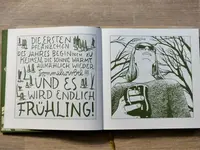 DIE ERSTEN
PFLÄNZCHEN
DES JAHRES BEGINNEN ZU
KEIMEN, DIE SONNE WÄRMT
ALLMÄHLICH WIEDER
UND ES
WIRD ENDLICH
FRÜHLING!